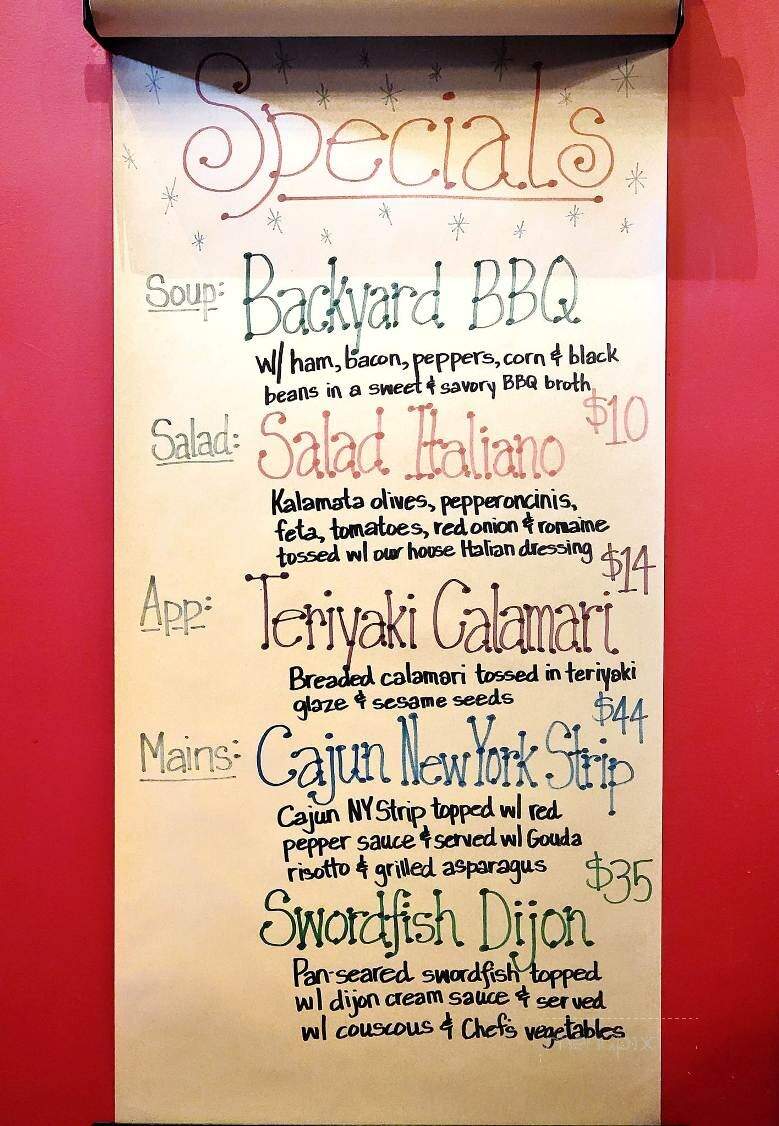 Specials
Soup: Backyard BBQ
w/ ham, bacon, peppers, corn & black
beans in a sweet & savory BBQ broth
$10
Salad: Salad Italiano
Kalamata olives, pepperoncinis,
feta, tomatoes, red onion & romaine
tossed w/ our house Italian dressing
$14
App: Teriyaki Calamari
Breaded calamari tossed in teriyaki
glaze & sesame seeds
$44
Mains: Cajun New York Strip
Cajun NY Strip topped w/ red
pepper sauce & served w/ Gouda
risotto & grilled asparagus
$35
Swordfish Dijon
Pan-seared swordfish topped
w/ dijon cream sauce & served
w/ couscous & Chef's vegetables